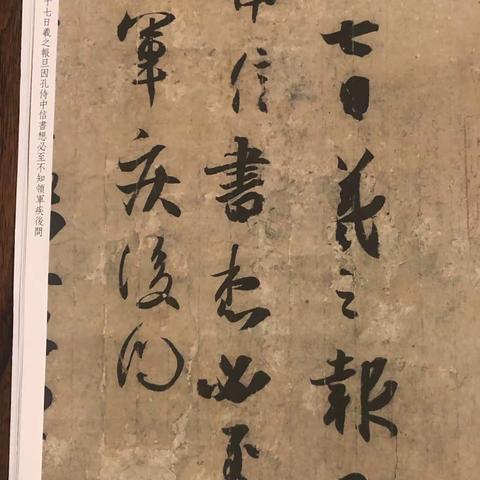 七日羲之報
中信書想必至
軍疾後問
十七日羲之報且因孔侍中信書想必至不知領軍疾後問